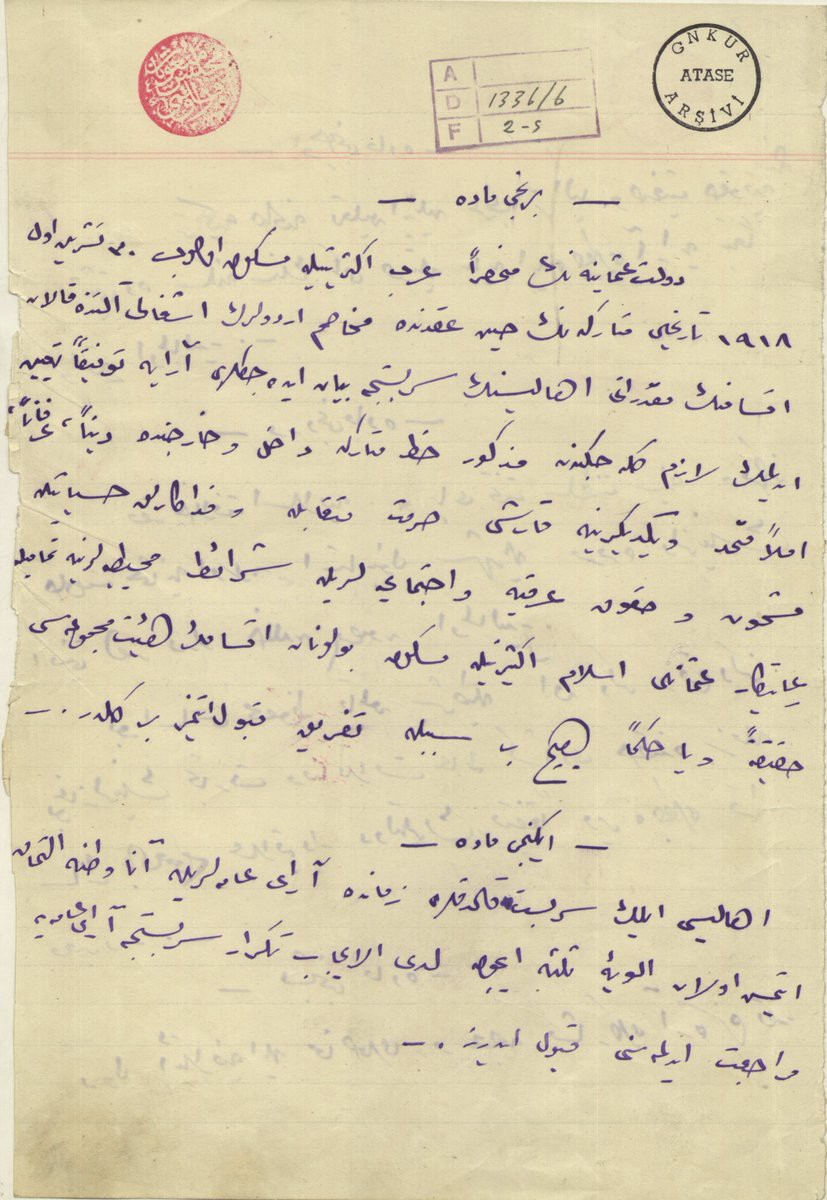 GNKUR
ATASE
ARŞİVİ
A
D 1336/6
F 2-5
— برنجی ماده —
دولت عثمانیه نك منحصراً عرب اكثریتیله مسكون اولوب ٣٠ تشرین اول
١٩١٨ تاریخلی متاركه نك حین عقدنده مخاصم اردولرك اشغالی آلتنده قالان
اقسامنك مقدراتی اهالیسنك سربستجه بیان ایده جكلری آرایه توفیقاً تعیین
ایدلمك لازم كله جكندن مذكور خط متاركه داخل وخارجنده دیناً، عرفاناً،
املاً متحد ویكدیكرینه قارشی حرمت متقابله وفداكارلق حسیاتیله
مشحون وحقوق عرقیه واجتماعیه لریله شرائط محیطیه لرینه تمامیله
رعایتكار عثمانلی اسلام اكثریتیله مسكون بولونان اقسامك هیئت مجموعه سی
حقیقةً ویا حكماً هیچ بر سببله تفریق قبول ایتمز بر كلدر. —
— ایكنجی ماده —
اهالیسی ایلك سربست قالدقلری زمانده آرای عامه لریله آنا وطنه التحاق
ایتمش اولان الویۀ ثلثه ایچون لدی الایجاب تكرار سربستجه آرای عامه یه
مراجعت ایدلمه سنی قبول ایدرز. —